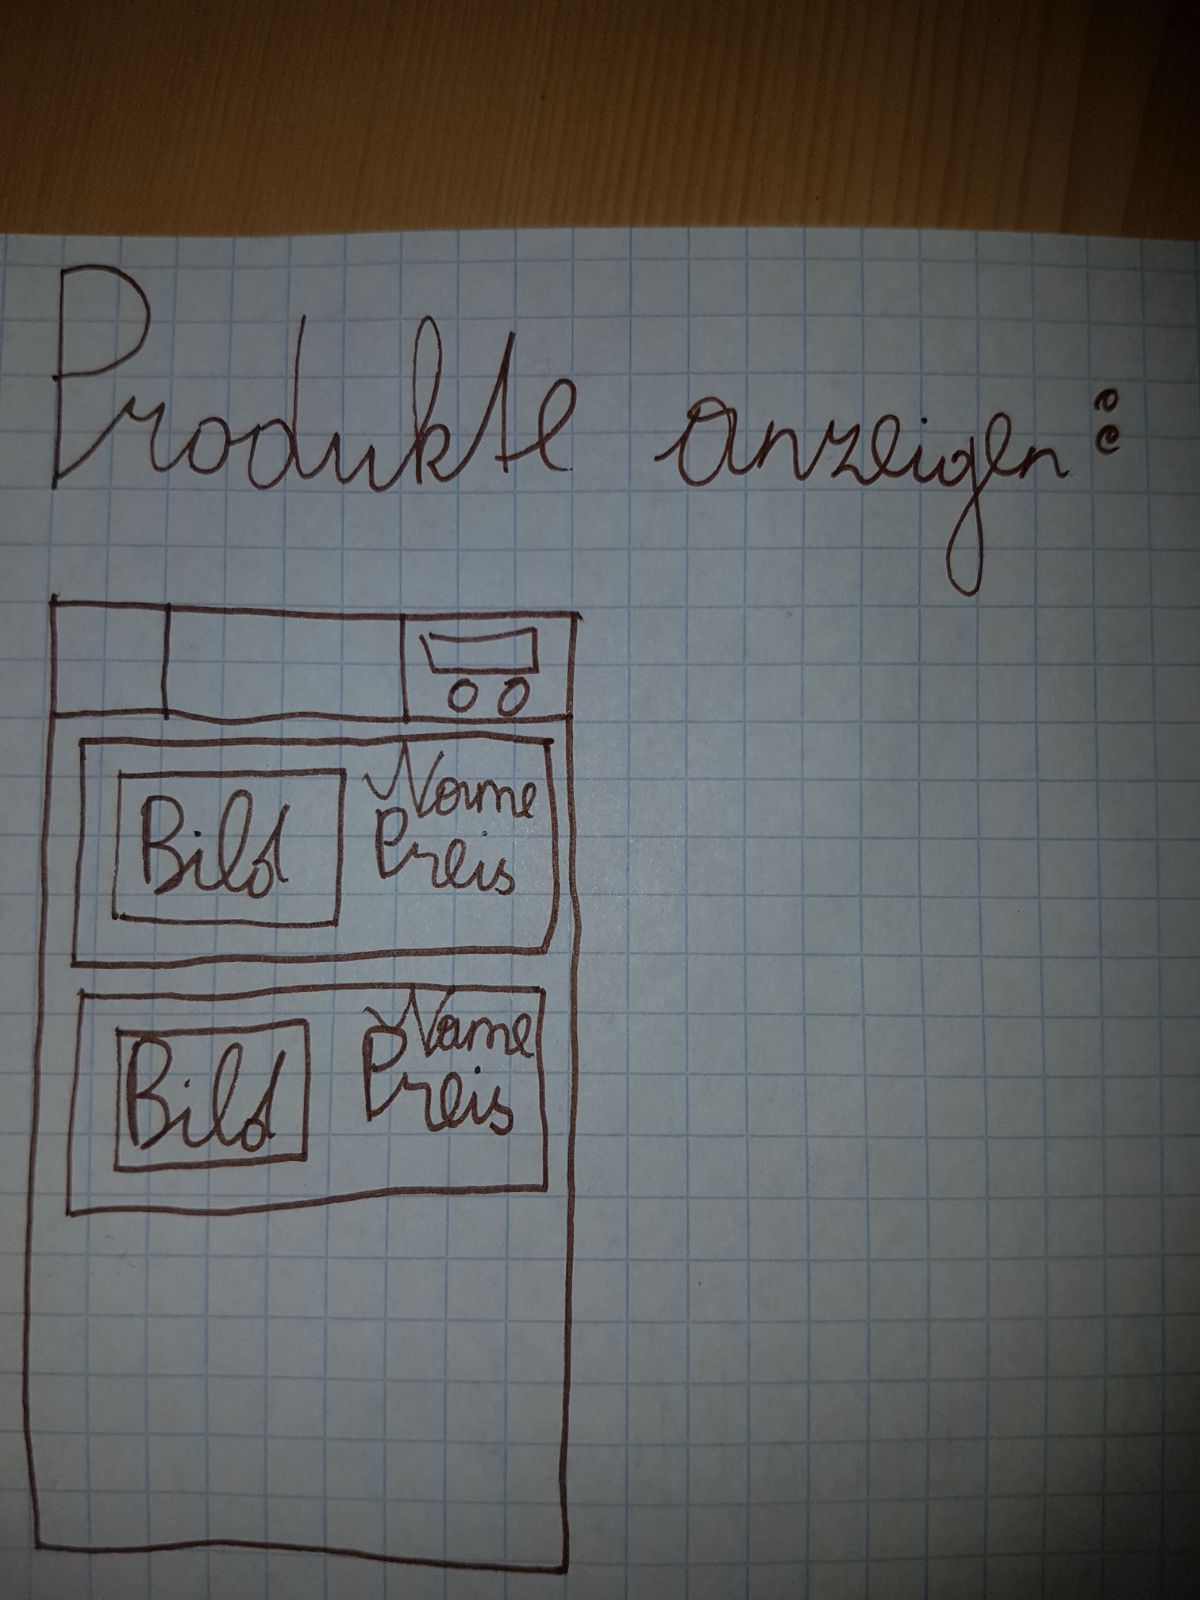 Produkte anzeigen:
Bild
Name
Preis
Bild
Name
Preis